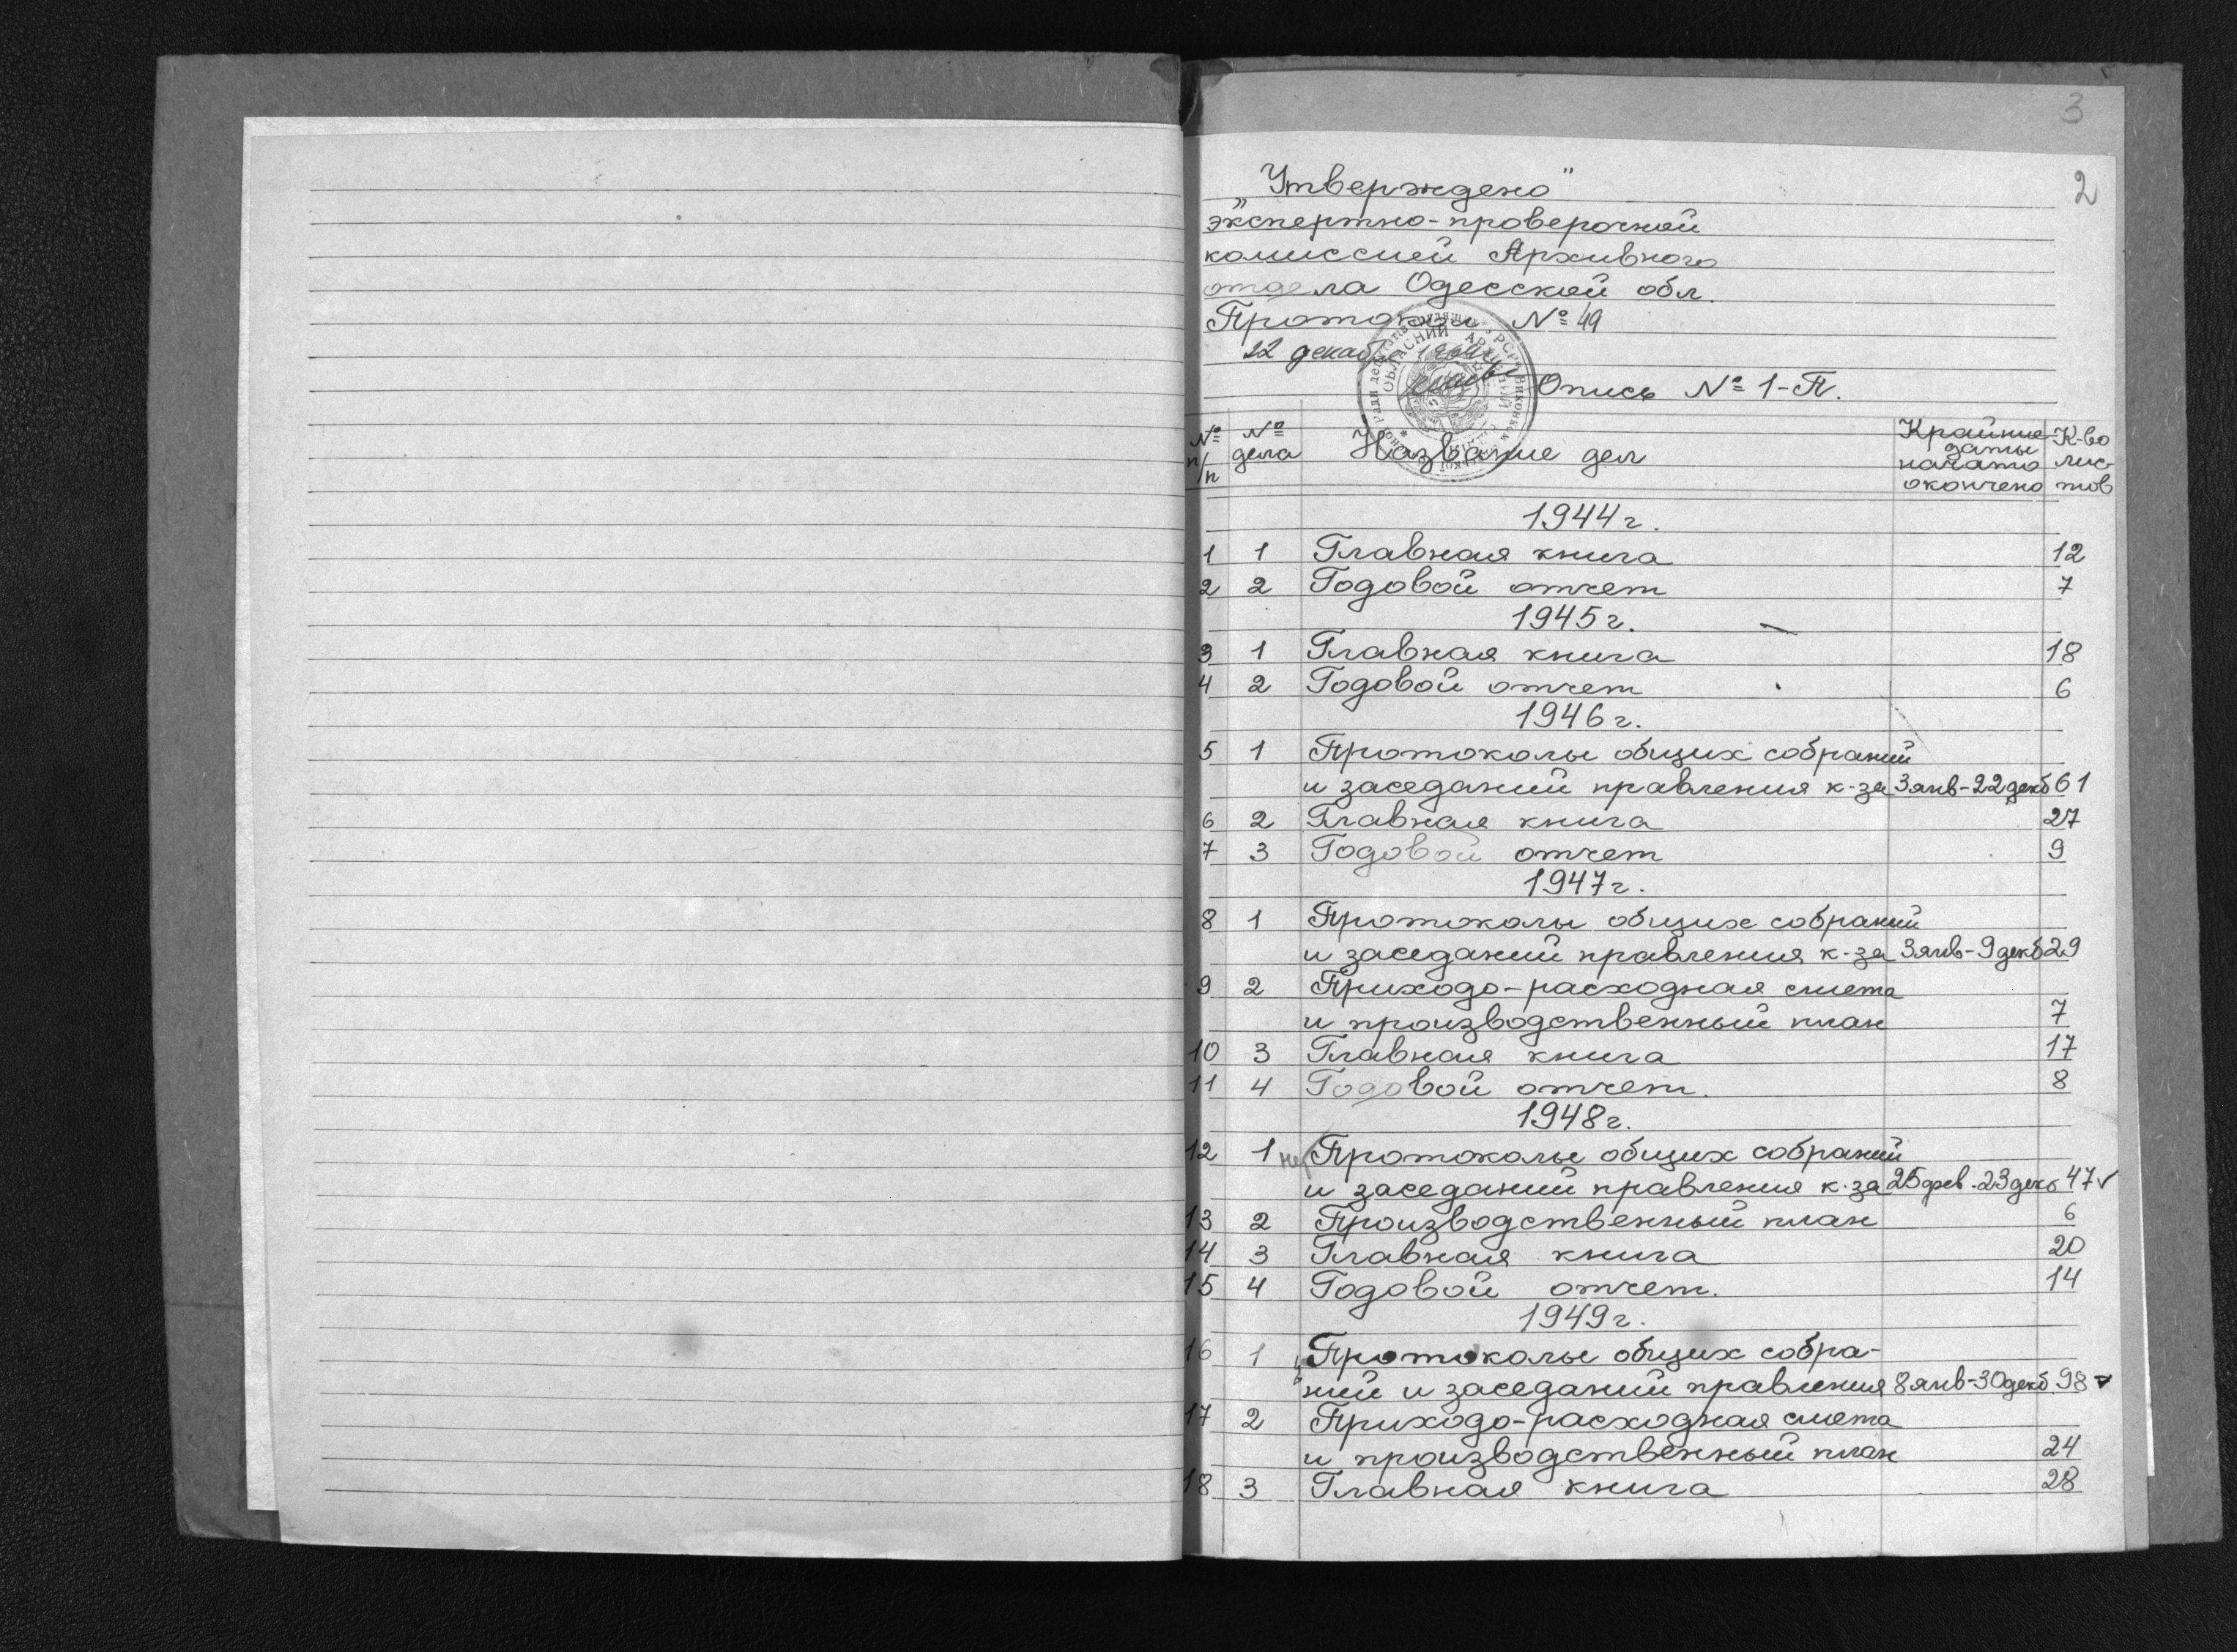 3
2
"Утверждено"
экспертно-проверочной
комиссией Архивного
отдела Одесской обл.
Протокол № 49
22 декабря
Опись № 1-П.
№ п/п № дела Название дел Крайние даты начато окончено К-во листов
1944 г.
1 1 Главная книга 12
2 2 Годовой отчет 7
1945 г.
3 1 Главная книга 18
4 2 Годовой отчет 6
1946 г.
5 1 Протоколы общих собраний
и заседаний правления к-за 3 янв-22 декб 61
6 2 Главная книга 27
7 3 Годовой отчет 9
1947 г.
8 1 Протоколы общих собраний
и заседаний правления к-за 3 янв-9 декб 29
9 2 Приходо-расходная смета
и производственный план 7
10 3 Главная книга 17
11 4 Годовой отчет. 8
1948 г.
12 1 Протоколы общих собраний
и заседаний правления к-за 25 фев-23 декб 47 ✓
13 2 Производственный план 6
14 3 Главная книга 20
15 4 Годовой отчет. 14
1949 г.
16 1 Протоколы общих собра-
ний и заседаний правления 8 янв-30 декб 98 ✓
17 2 Приходо-расходная смета
и производственный план 24
18 3 Главная книга 28